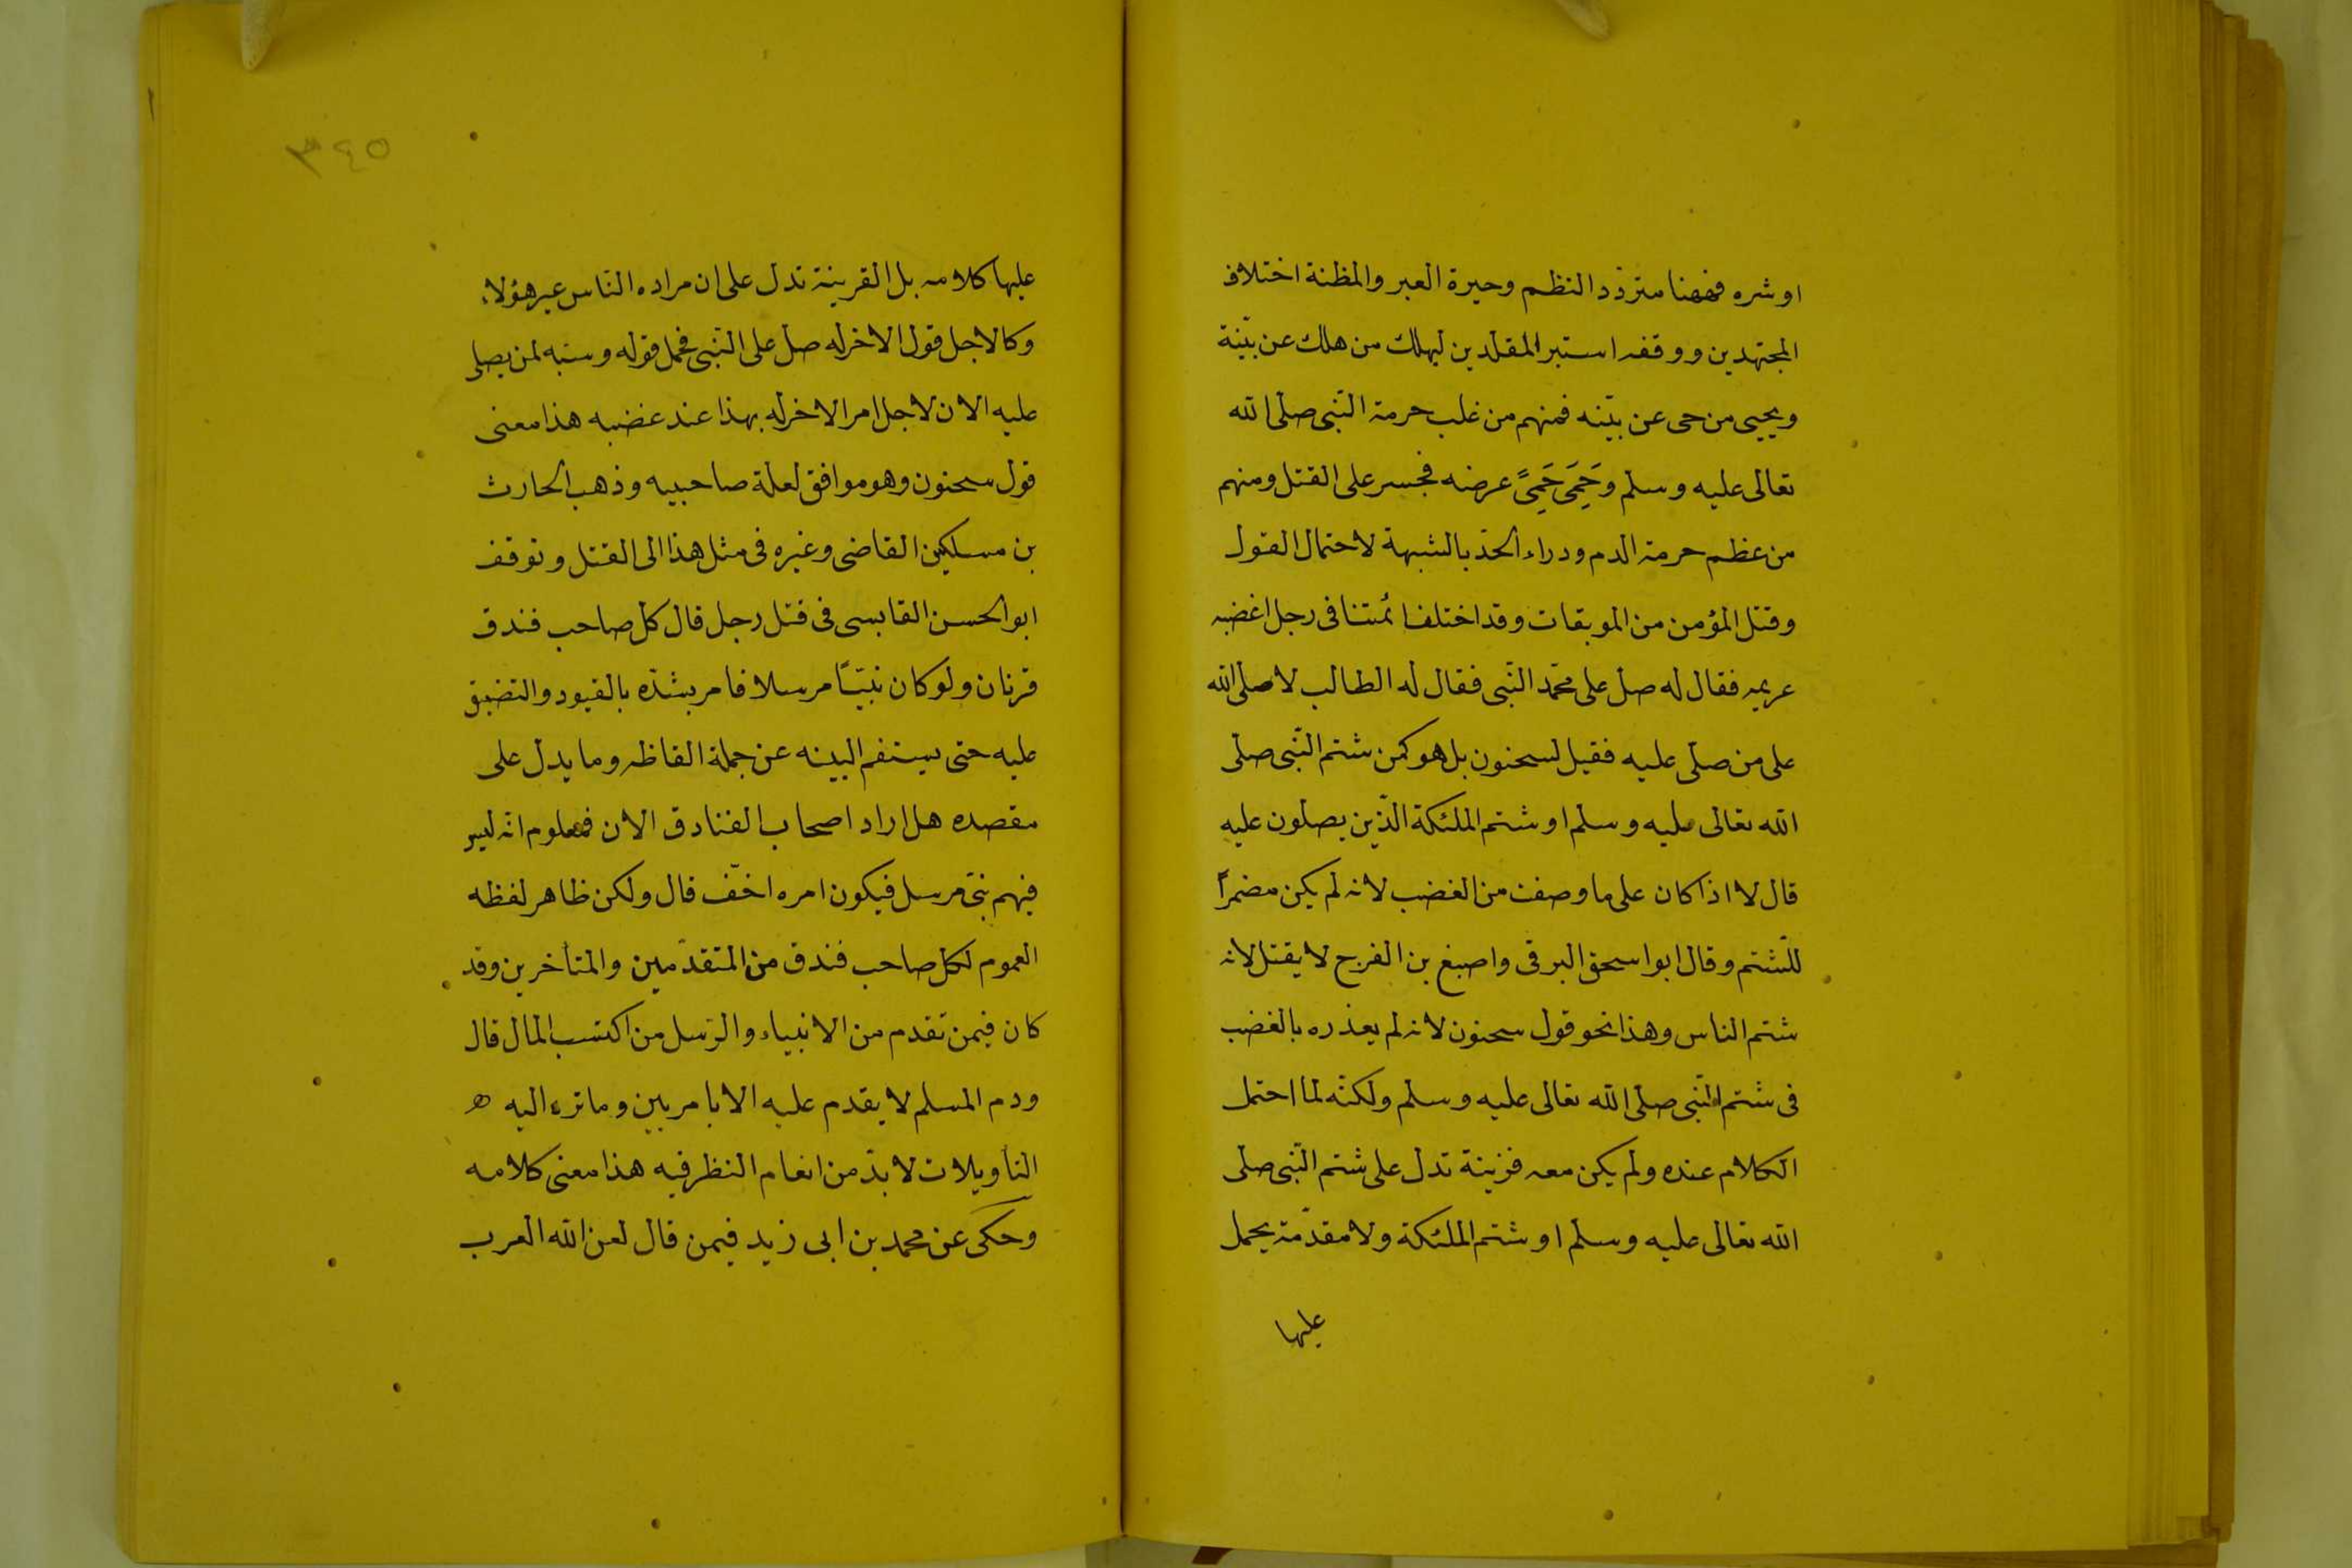 او شره فههنا متردد النظم وحيرة العبر والمظنة اختلاف
المجتهدين ووقفه استبر المقلدين ليهلك من هلك عن بيّنة
ويحيى من حى عن بيّنه فمنهم من غلب حرمة النّبى صلى الله
تعالى عليه وسلم وحَمِى حَمِىً عرضه فجسر على القتل ومنهم
من عظم حرمة الدم ودراء الحدّ بالشبهة لاحتمال القول
وقتل المؤمن من الموبقات وقد اختلف ائمتنا فى رجل اغضبه
عريمه فقال له صل على محمّد النّبى فقال له الطالب لا صلى الله
على من صلّى عليه فقيل لسحنون بل هو كمن شتم النّبى صلى
الله تعالى عليه وسلم او شتم الملئكة الّذين يصلون عليه
قال لا اذا كان على ما وصفت من الغضب لانه لم يكن مضمراً
للشّتم وقال ابو اسحق البرقى واصبغ بن الفرج لا يقتل لانه
شتم الناس وهذا نحو قول سحنون لانه لم يعذره بالغضب
فى شتم النّبى صلى الله تعالى عليه وسلم ولكنّه لما احتمل
الكلام عنده ولم يكن معه قزينة تدل على شتم النّبى صلى
الله تعالى عليه وسلم او شتم الملئكة ولا مقدّمة يحمل
عليها
٣٤٥
عليها كلامه بل القرينة تدل على ان مراده النّاس غير هؤلاء
وكالاجل قول الاخر له صل على النّبى فحمل قوله وسبه لمن يصلى
عليه الان لاجل امر الاخر له بهذا عند غضبه هذا معنى
قول سحنون وهو موافق لعلة صاحبيه وذهب الحارث
بن مسكين القاضى وغيره فى مثل هذا الى القتل وتوقف
ابو الحسن القابسى فى قتل رجل قال كل صاحب فندق
قرنان ولو كان نبيّاً مرسلا فامر بشدّه بالقيود والتضيق
عليه حتى يستفم البينه عن جملة الفاظه وما يدل على
مقصده هل اراد اصحاب الفنادق الان فمعلوم انه ليس
فيهم نبىّ مرسل فيكون امره اخفّ قال ولكن ظاهر لفظه
العموم لكل صاحب فندق من المتقدّمين والمتأخرين وقد
كان فيمن تقدم من الانبياء والرّسل من اكتسب المال قال
ودم المسلم لا يقدم عليه الا بامر بين وما ترد اليه ه
التأويلات لا بدّ من انعام النظر فيه هذا معنى كلامه
وحكى عن محمد بن ابى زيد فيمن قال لعن الله العرب